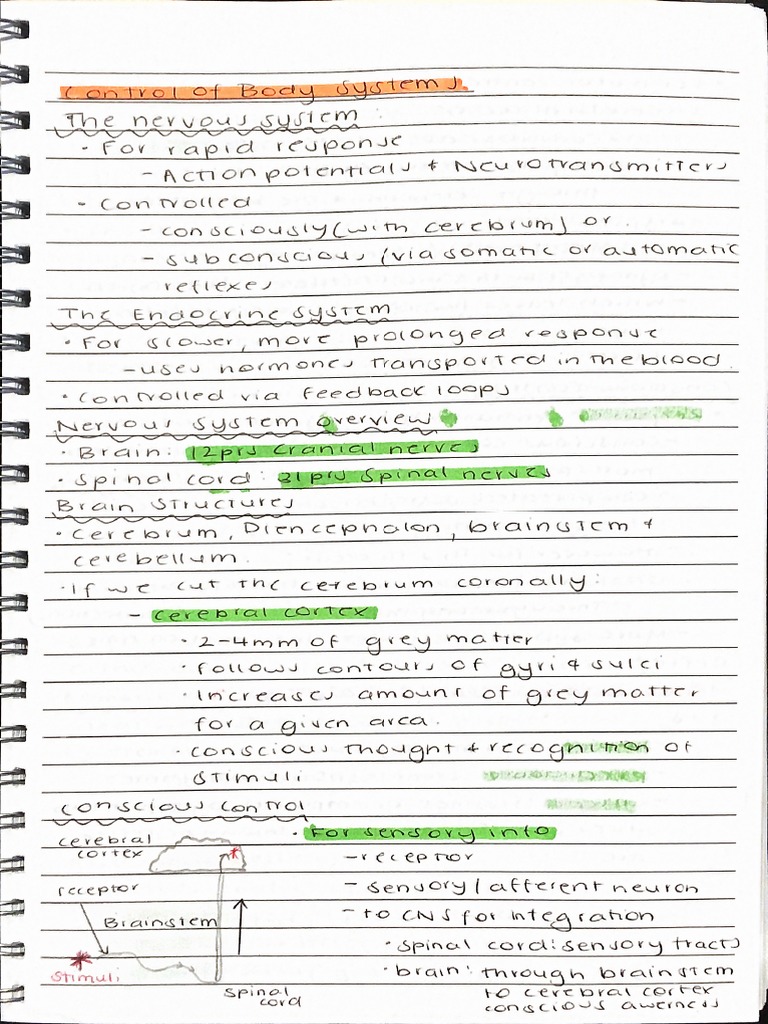 Control of Body Systems.
The nervous system:
• For rapid response
- Action potentials + Neurotransmitters
• Controlled
- consciously (with cerebrum) or
- subconscious (via somatic or automatic
reflexes
The Endocrine System
• For slower, more prolonged response
- uses hormones transported in the blood.
• Controlled via feedback loops
Nervous system overview
• Brain: 12prs Cranial nerves
• Spinal cord: 31 prs Spinal nerves
Brain Structures
• Cerebrum, Diencephalon, brainstem +
cerebellum.
• If we cut the cerebrum coronally:
- cerebral cortex
• 2-4mm of grey matter
• follows contours of gyri & sulci
• Increases amount of grey matter
for a given area.
• conscious thought + recognition of
stimuli
Conscious Control
• For sensory info
- receptor
- sensory/afferent neuron
- to CNS for integration
• spinal cord: sensory tracts
• brain: through brainstem
to cerebral cortex
conscious awerness
cerebral
cortex
receptor
Brainstem
Stimuli
Spinal
cord